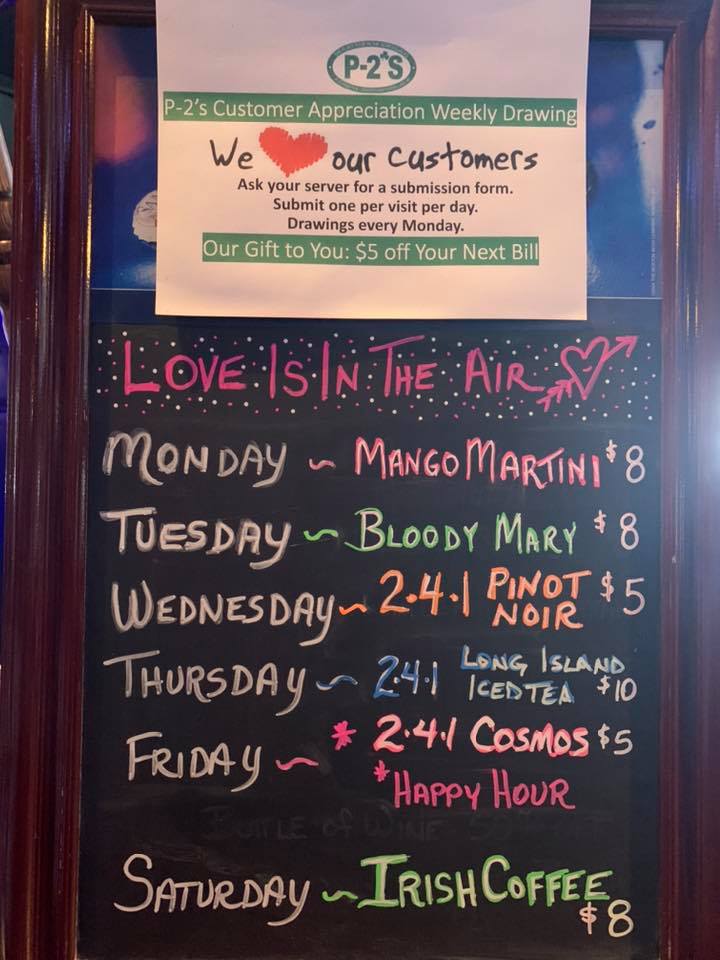 P-2's
P-2's Customer Appreciation Weekly Drawing
We our customers
Ask your server for a submission form.
Submit one per visit per day.
Drawings every Monday.
Our Gift to You: $5 off Your Next Bill
LOVE IS IN THE AIR
MONDAY ~ MANGO MARTINI $8
TUESDAY ~ BLOODY MARY $8
WEDNESDAY ~ 2.4.1 PINOT NOIR $5
THURSDAY ~ 2.4.1 LONG ISLAND ICED TEA $10
FRIDAY ~ * 2.4.1 COSMOS $5
*HAPPY HOUR
BOTTLE OF WINE
SATURDAY ~ IRISH COFFEE
$8